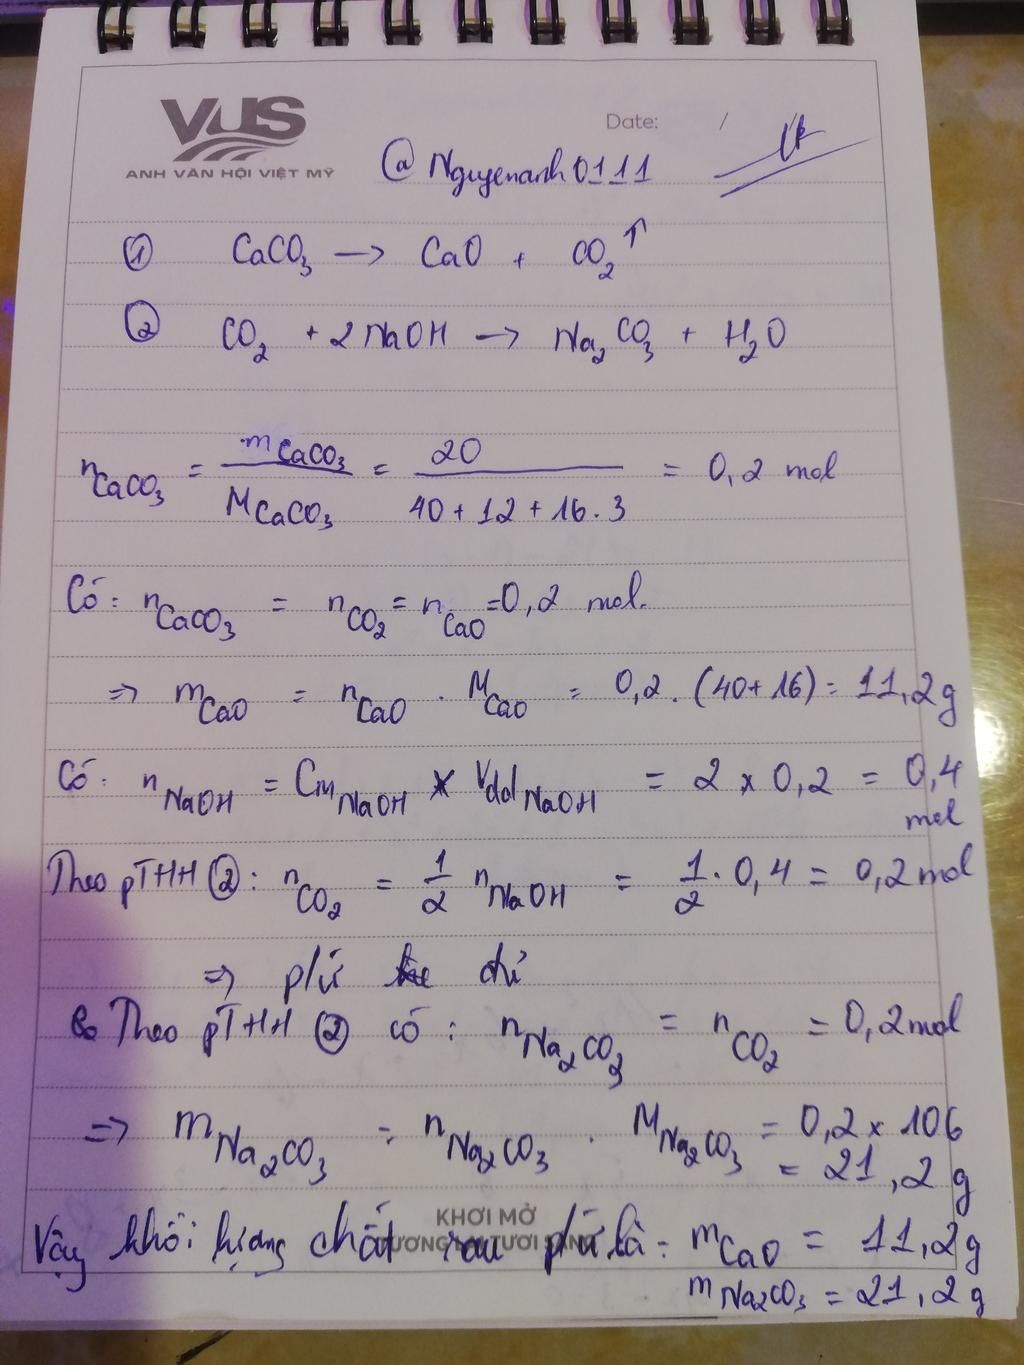 VUS
ANH VĂN HỘI VIỆT MỸ
Date: /
@Nguyenanh0111
① CaCO₃ → CaO + CO₂↑
② CO₂ + 2NaOH → Na₂CO₃ + H₂O
nCaCO₃ = mCaCO₃ / MCaCO₃ = 20 / 40 + 12 + 16.3 = 0,2 mol
Có: nCaCO₃ = nCO₂ = nCaO = 0,2 mol.
⇒ mCaO = nCaO . MCaO = 0,2 . (40+16) = 11,2g
Có: nNaOH = CmNaOH × VddNaOH = 2 × 0,2 = 0,4
mol
Theo pTHH ②: nCO₂ = 1/2 nNaOH = 1/2 . 0,4 = 0,2 mol
⇒ pứ đủ
Theo pTHH ② có: nNa₂CO₃ = nCO₂ = 0,2mol
⇒ mNa₂CO₃ = nNa₂CO₃ . MNa₂CO₃ = 0,2 × 106
= 21,2g
KHƠI MỞ
TƯƠNG LAI TƯƠI SÁNG
Vậy khối lượng chất sau pứ là: mCaO = 11,2g
mNa₂CO₃ = 21,2g